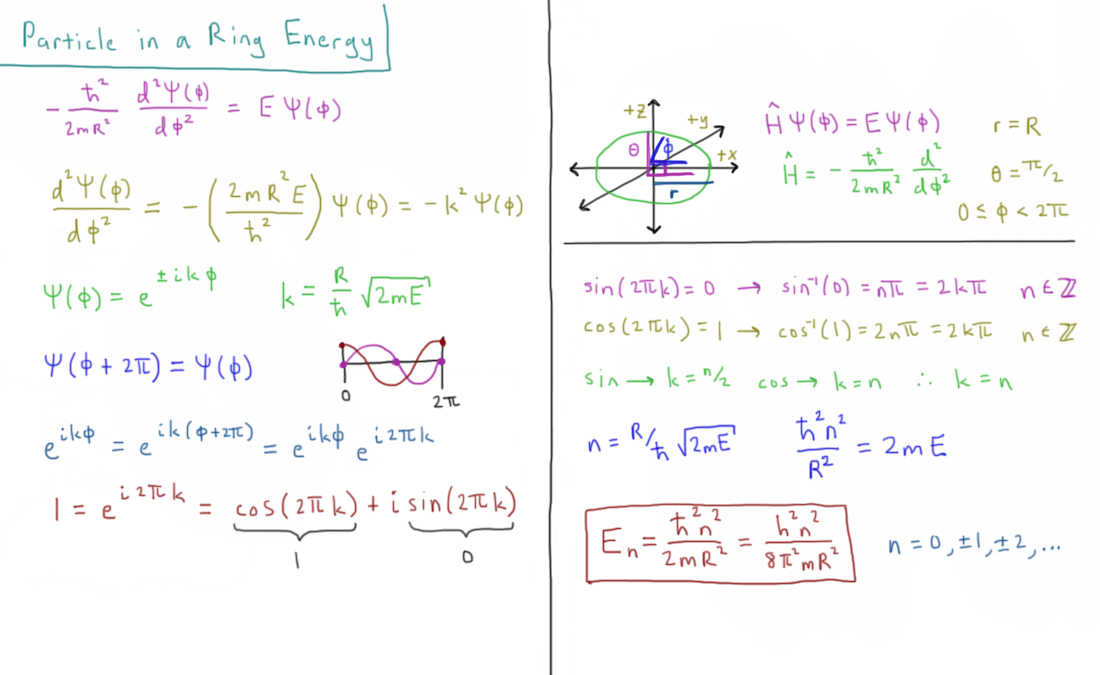 Particle in a Ring Energy
-ħ²/2mR² d²Ψ(φ)/dφ² = E Ψ(φ)
d²Ψ(φ)/dφ² = -(2mR²E/ħ²) Ψ(φ) = -k² Ψ(φ)
Ψ(φ) = e^(±ikφ) k = R/ħ √(2mE)
Ψ(φ + 2π) = Ψ(φ)
0 2π
e^(ikφ) = e^(ik(φ+2π)) = e^(ikφ) e^(i2πk)
1 = e^(i2πk) = cos(2πk) + i sin(2πk)
1 0
+z +y +x θ φ r
Ĥ Ψ(φ) = E Ψ(φ) r = R
Ĥ = -ħ²/2mR² d²/dφ² θ = π/2
0 ≤ φ < 2π
sin(2πk) = 0 → sin⁻¹(0) = nπ = 2kπ n ∈ ℤ
cos(2πk) = 1 → cos⁻¹(1) = 2nπ = 2kπ n ∈ ℤ
sin → k = n/2 cos → k = n ∴ k = n
n = R/ħ √(2mE) ħ²n²/R² = 2mE
Eₙ = ħ²n²/2mR² = h²n²/8π²mR² n = 0, ±1, ±2, ...